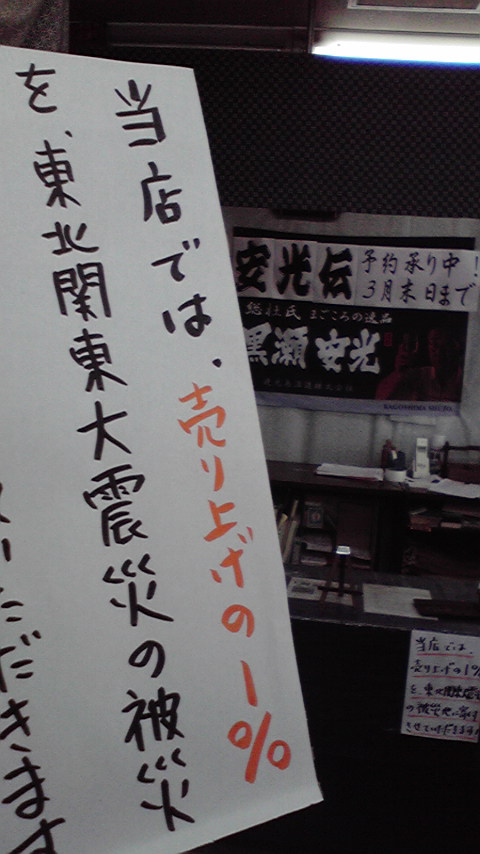 当店では、売り上げの1%
を、東北関東大震災の被災
いただきます
安光伝
予約承り中！
3月末日まで
総杜氏 まごころの逸品
黒瀬 安光
当店では、
売り上げの1%
を、東北関東大震災
の被災地に寄付
させていただきます